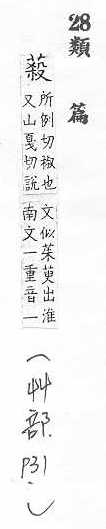 28類篇
蔱
所例切椒也
又山戛切說
文似茱萸出淮
南文一重音一
(艸部 P31.)